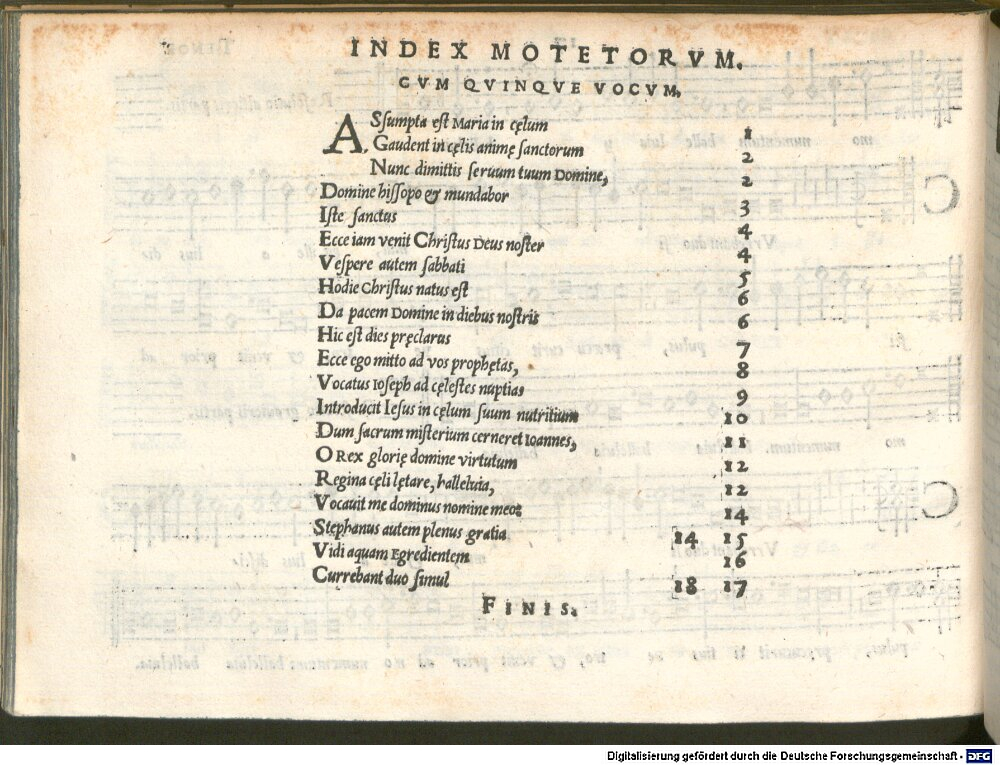 INDEX MOTETORVM.
CVM QVINQVE VOCVM.
ASsumpta est Maria in cęlum 1
Gaudent in cęlis animę sanctorum 2
Nunc dimittis seruum tuum Domine, 2
Domine hissopo & mundabor 3
Iste sanctus 4
Ecce iam venit Christus Deus noster 4
Vespere autem sabbati 5
Hodie Christus natus est 6
Da pacem Domine in diebus nostris 6
Hic est dies pręclarus 7
Ecce ego mitto ad vos prophętas, 8
Vocatus Ioseph ad cęlestes nuptias 9
Introducit Iesus in cęlum suum nutritium 10
Dum sacrum misterium cerneret Ioannes, 11
O Rex glorię domine virtutum 12
Regina cęli lętare, halleluia, 12
Vocauit me dominus nomine meo 14
Stephanus autem plenus gratia 14 15
Vidi aquam Egredientem 16
Currebant duo simul 18 17
FINIS.
Digitalisierung gefördert durch die Deutsche Forschungsgemeinschaft - DFG